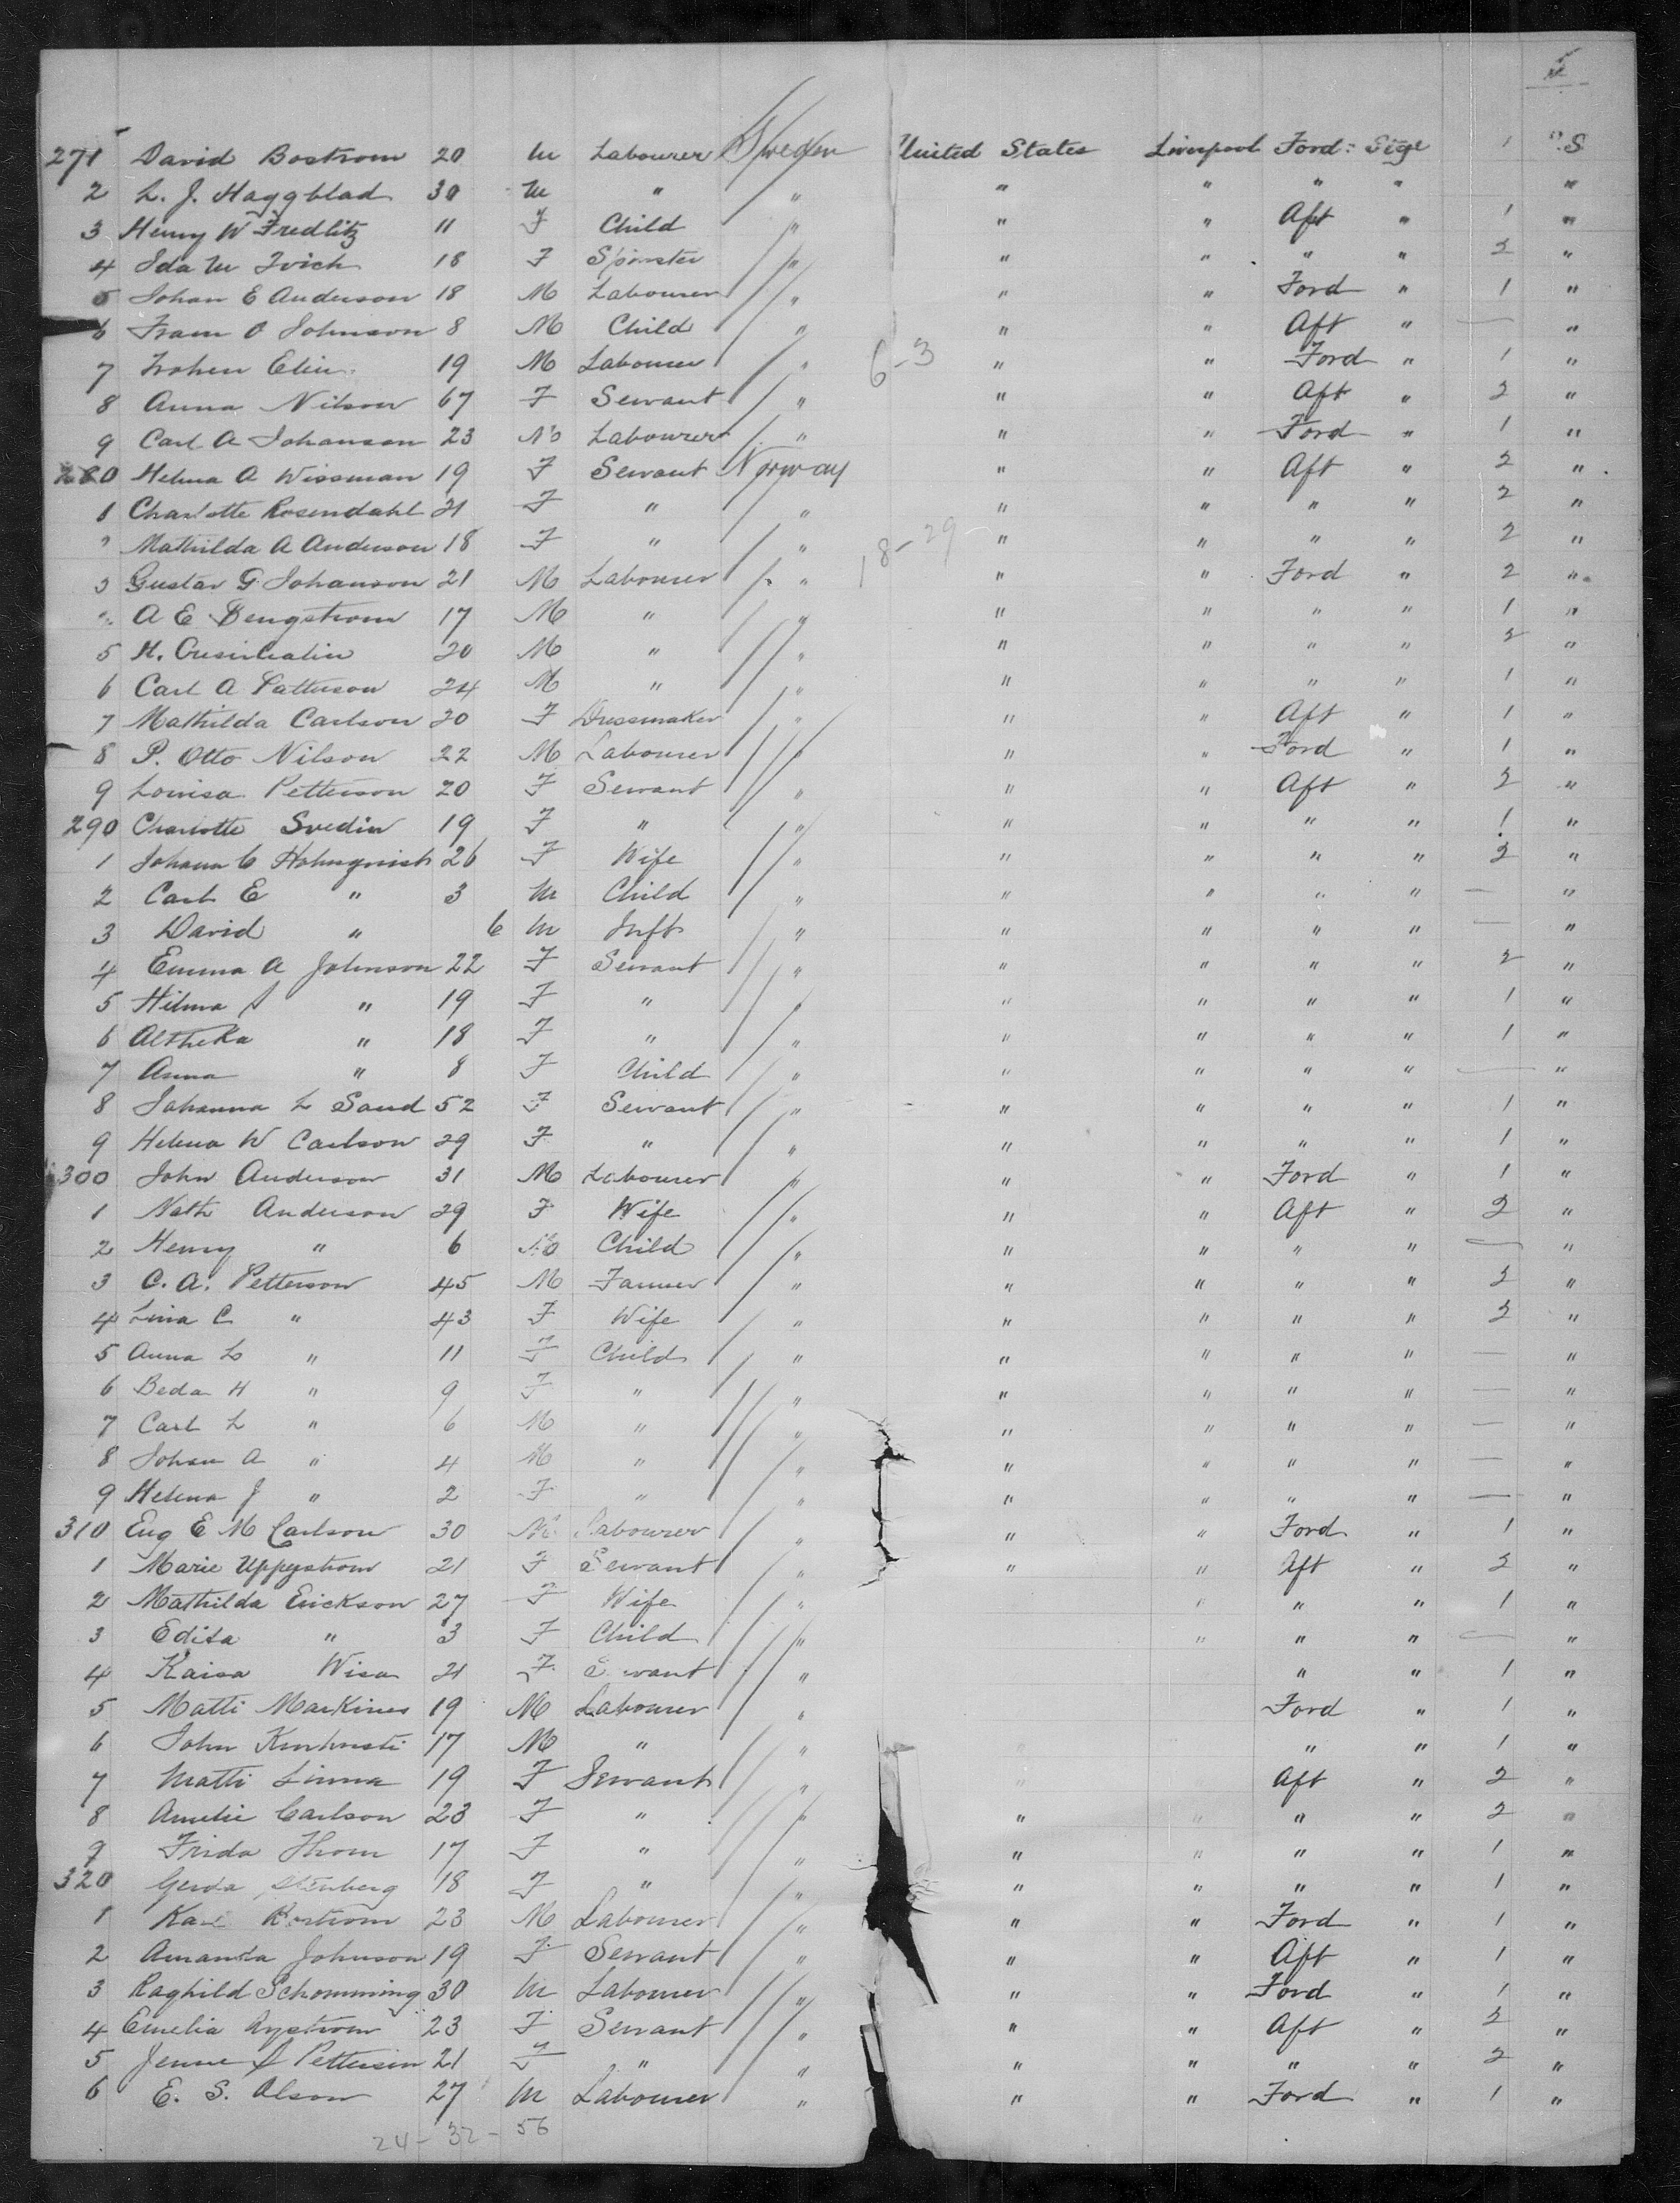 271 David Bostrom 20 M Labourer Sweden United States Liverpool Ford: Stge 1 S
2 L. J. Haggblad 30 M " " " " " " "
3 Henry W Fredlitz 11 F Child " " " Aft " 1 "
4 Ida M 18 F Spinster " " " " " 2 "
5 Johan E Anderson 18 M Labourer " " " Ford " 1 "
6 O Johnson 8 M Child " " " Aft " — "
7 Elin 19 M Labourer " 6-3 " " Ford " 1 "
8 Anna Nilson 67 F Servant " " " Aft " 2 "
9 Carl A Johanson 23 M Labourer " " " Ford " 1 "
280 Helma A Wissman 19 F Servant Norway " " Aft " 2 "
1 Charlotte Rosendahl 21 F " " " " " " 2 "
2 Mathilda A Anderson 18 F " " 18-29 " " " " 2 "
3 Gustav G. Johanson 21 M Labourer " " " Ford " 2 "
" A E Bengstrom 17 M " " " " " " 1 "
5 H. 20 M " " " " " " 2 "
6 Carl A Patterson 24 M " " " " " " 1 "
7 Mathilda Carlson 20 F Dressmaker " " " Aft " 1 "
8 P. Otto Nilson 22 M Labourer " " " Ford " 1 "
9 Louisa Petterson 20 F Servant " " " Aft " 2 "
290 Charlotte Svedin 19 F " " " " " " 1 "
1 Johann C Holmqvist 26 F Wife " " " " " 2 "
2 Carl E " 3 M Child " " " " " — "
3 David " 6 M Inft " " " " " — "
4 Emma A Johnson 22 F Servant " " " " " 2 "
5 Hilma S " 19 F " " " " " " 1 "
6 " 18 F " " " " " " 1 "
7 Anna " 8 F Child " " " " " — "
8 Johanna L Sand 52 F Servant " " " " " 1 "
9 Helma W Carlson 29 F " " " " " " 1 "
300 John Anderson 31 M Labourer " " " Ford " 1 "
1 Nath Anderson 29 F Wife " " " Aft " 2 "
2 Henry " 6 M Child " " " " " — "
3 C. A. Petterson 45 M Farmer " " " " " 2 "
4 Lina C " 43 F Wife " " " " " 2 "
5 Anna L " 11 F Child " " " " " — "
6 Beda H " 9 F " " " " " " — "
7 Carl L " 6 M " " " " " " — "
8 Johan A " 4 M " " " " " " — "
9 Helena J " 2 F " " " " " " — "
310 Eug E M Carlson 30 M Labourer " " " Ford " 1 "
1 Marie Uppgstrom 21 F Servant " " " Aft " 2 "
2 Mathilda Erickson 27 F Wife " " " " 1 "
3 Edita " 3 F Child " " " " — "
4 Kaisa Wisa 21 F Servant " " " 1 "
5 Matti Markines 19 M Labourer " Ford " 1 "
6 John 17 M " " " " 1 "
7 Matti Linna 19 F Servant " Aft " 2 "
8 Amelie Carlson 23 F " " " " " " 2 "
9 Frida Thom 17 F " " " " " " 1 "
320 Gerda Stenberg 18 F " " " " " " 1 "
1 Karl 23 M Labourer " " " Ford " 1 "
2 Amanda Johnson 19 F Servant " " " Aft " 1 "
3 Raghild Schomming 30 M Labourer " " " Ford " 1 "
4 Emelia Nystrom 23 F Servant " " " Aft " 2 "
5 Jenne S Petterson 21 F " " " " " " 2 "
6 E. S. Olson 27 M Labourer " " " Ford " 1 "
24 - 32 - 56